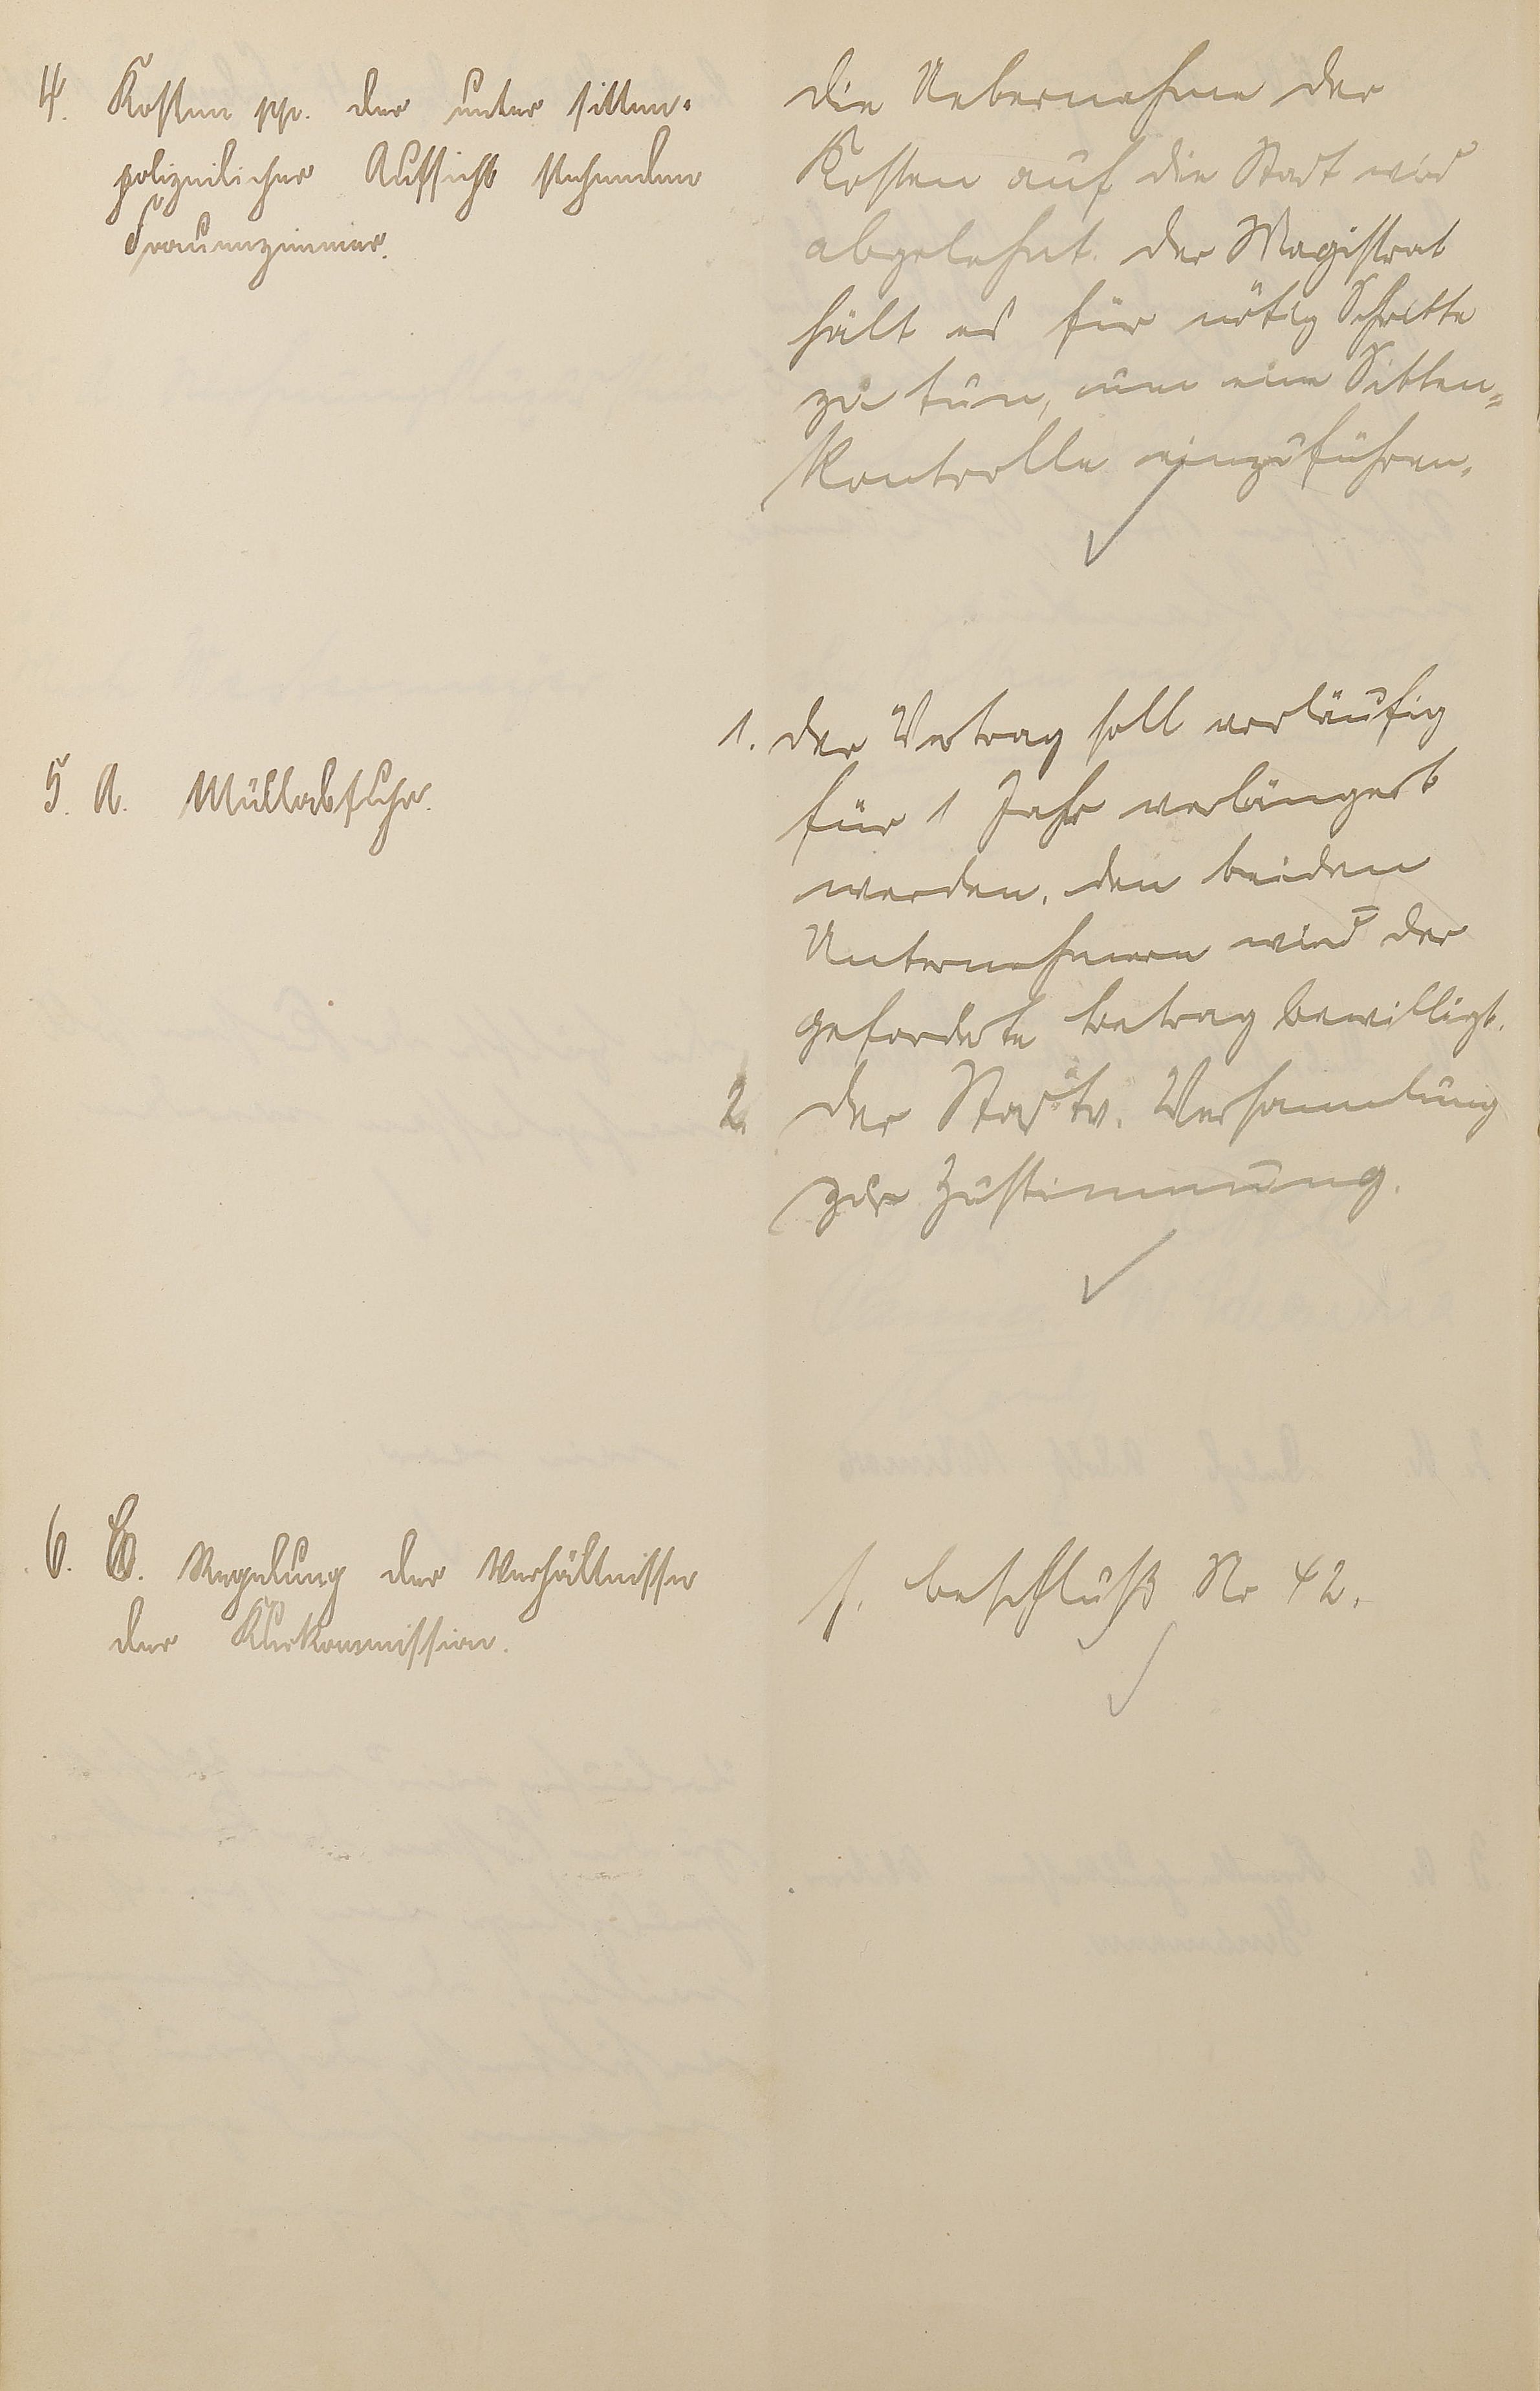 4. Kosten pp. der unter sitten-
polizeilicher Aufsicht stehenden
Frauenzimmer.
Die Uebernahme der
Kosten auf die Stadt wird
abgelehnt. Der Magistrat
hält es für nötig Schritte
zu tun, um eine Sitten-
kontrolle einzuführen.
5. A. Müllabfuhr.
1. Der Vertrag soll vorläufig
für 1 Jahr verlängert
werden. Den beiden
Unternehmern wird der
geforderte Betrag bewilligt.
2. Der Stadtv. Versammlung
zur Zustimmung.
6. B. Regelung der Verhältnisse
der Kurkommission.
s. Beschluß Nr 42.